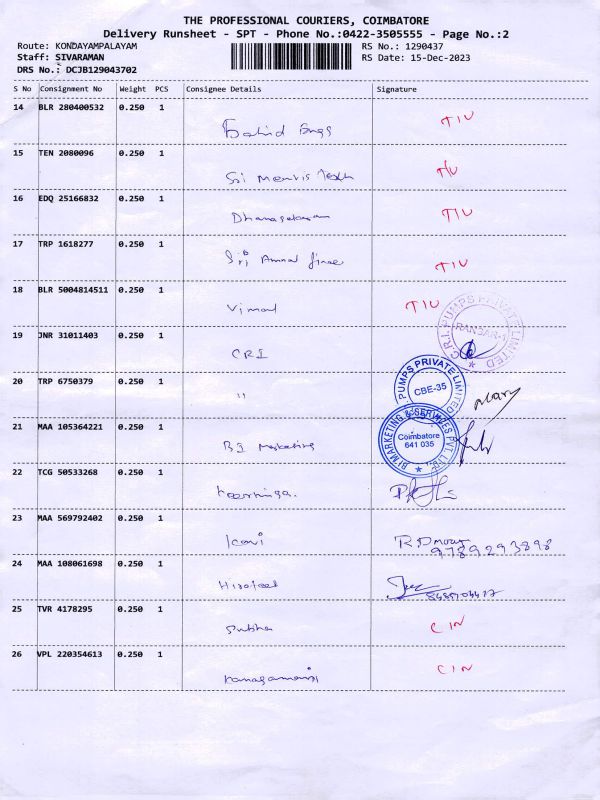 THE PROFESSIONAL COURIERS, COIMBATORE
Delivery Runsheet - SPT - Phone No.:0422-3505555 - Page No.:2
Route: KONDAYAMPALAYAM RS No.: 1290437
Staff: SIVARAMAN RS Date: 15-Dec-2023
DRS No.: DCJB129043702
S No Consignment No Weight PCS Consignee Details Signature
14 BLR 280400532 0.250 1 TIU
15 TEN 2080096 0.250 1 TIU
Sri
16 EDQ 25166832 0.250 1 TIU
Dhanasekaran
17 TRP 1618277 0.250 1
Sri Ammal TIU
18 BLR 5004814511 0.250 1 TIU
Vimal
C.R.I. PUMPS PRIVATE LIMITED
19 JNR 31011403 0.250 1
CRI
PUMPS PRIVATE LIMITED
20 TRP 6750379 0.250 1
CBE-35
"
21 MAA 105364221 0.250 1
BI MARKETING & SERVICES PVT. LTD.
Coimbatore
641 035
BI Marketing
22 TCG 50533268 0.250 1
23 MAA 569792402 0.250 1
9789293898
24 MAA 108061698 0.250 1
25 TVR 4178295 0.250 1
CIN
26 VPL 220354613 0.250 1
CIN